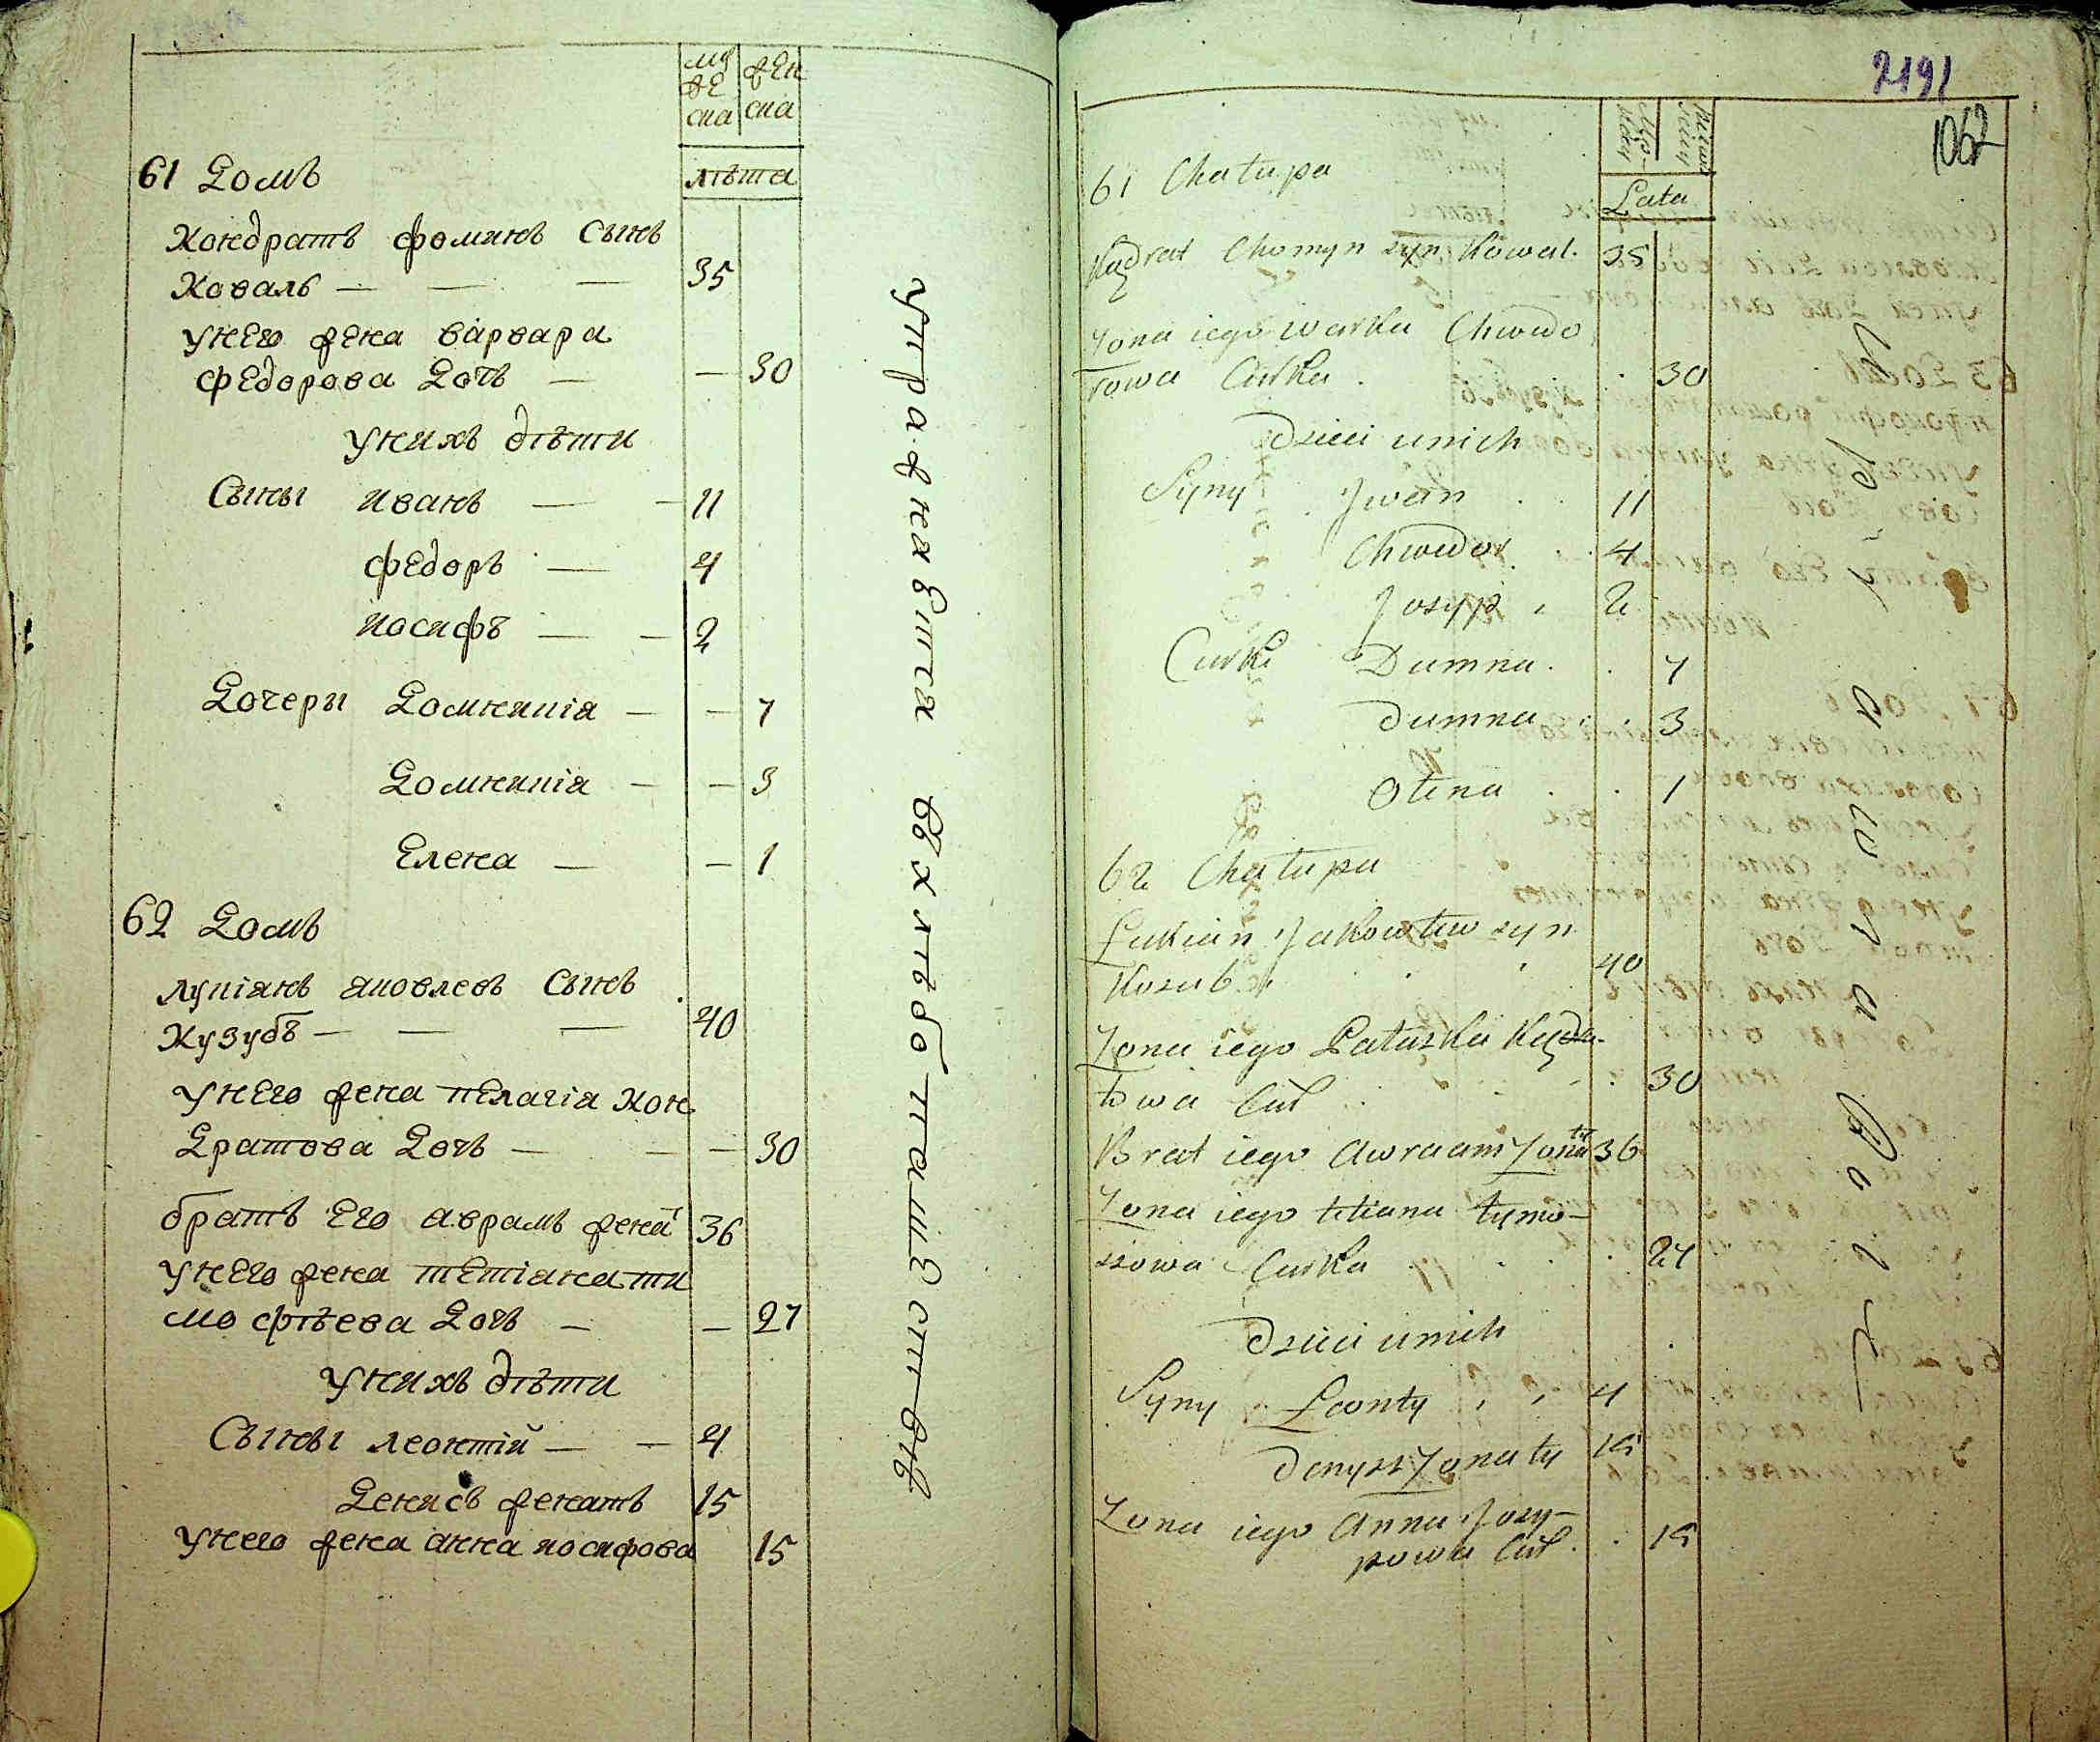 муже
ска
жен
ска
лѣта
61 Домъ
Кондратъ Фоминъ Сынъ
Коваль — — — 35
У него жена Варвара
Федорова Дочь — — 30
У нихъ дѣти
Сыны Иванъ — — 11
Федоръ — 4
Иосифъ — — 2
Дочеры Домникія — — 7
Домникія — — 3
Елена — — 1
62 Домъ
Лукіянъ Яковлевъ Сынъ
Кузубъ — — — 40
У него жена Пелагія Кон
дратова Дочь — — — 30
братъ Его Аврамъ жена т 36
У него жена Тетіана Ти
мофѣева Дочь — — 27
У нихъ дѣти
Сыны Леонтій — — 4
Денисъ женатъ 15
У него жена Анна Иосифова 15
упражняется въ хлѣбопашествѣ
2191
1062
Lata
61 Chałupa
Kądrat Chomyn syn Kowal. 35
Żona iego Warka Chwedo
rowa Curka . . 30
Dzieci u nich
Syny Iwan . . 11
Chwedor . . 4
Josyp , 2
Curki Dumna . . 7
Dumna . . 3
Ołena . . 1
62 Chałupa
Łukian Jakowliw syn
Kozub . . 40
Żona iego Pałażka Kądra-
towa Cur . . 30
Brat iego Awraam Żonaty 36
Żona iego tetiana tymo-
szowa Curka . . 27
Dzieci u nich
Syny Leonty , , 4
Denysz Żonaty 15
Żona iego Anna Josy-
powa Cur . . 15